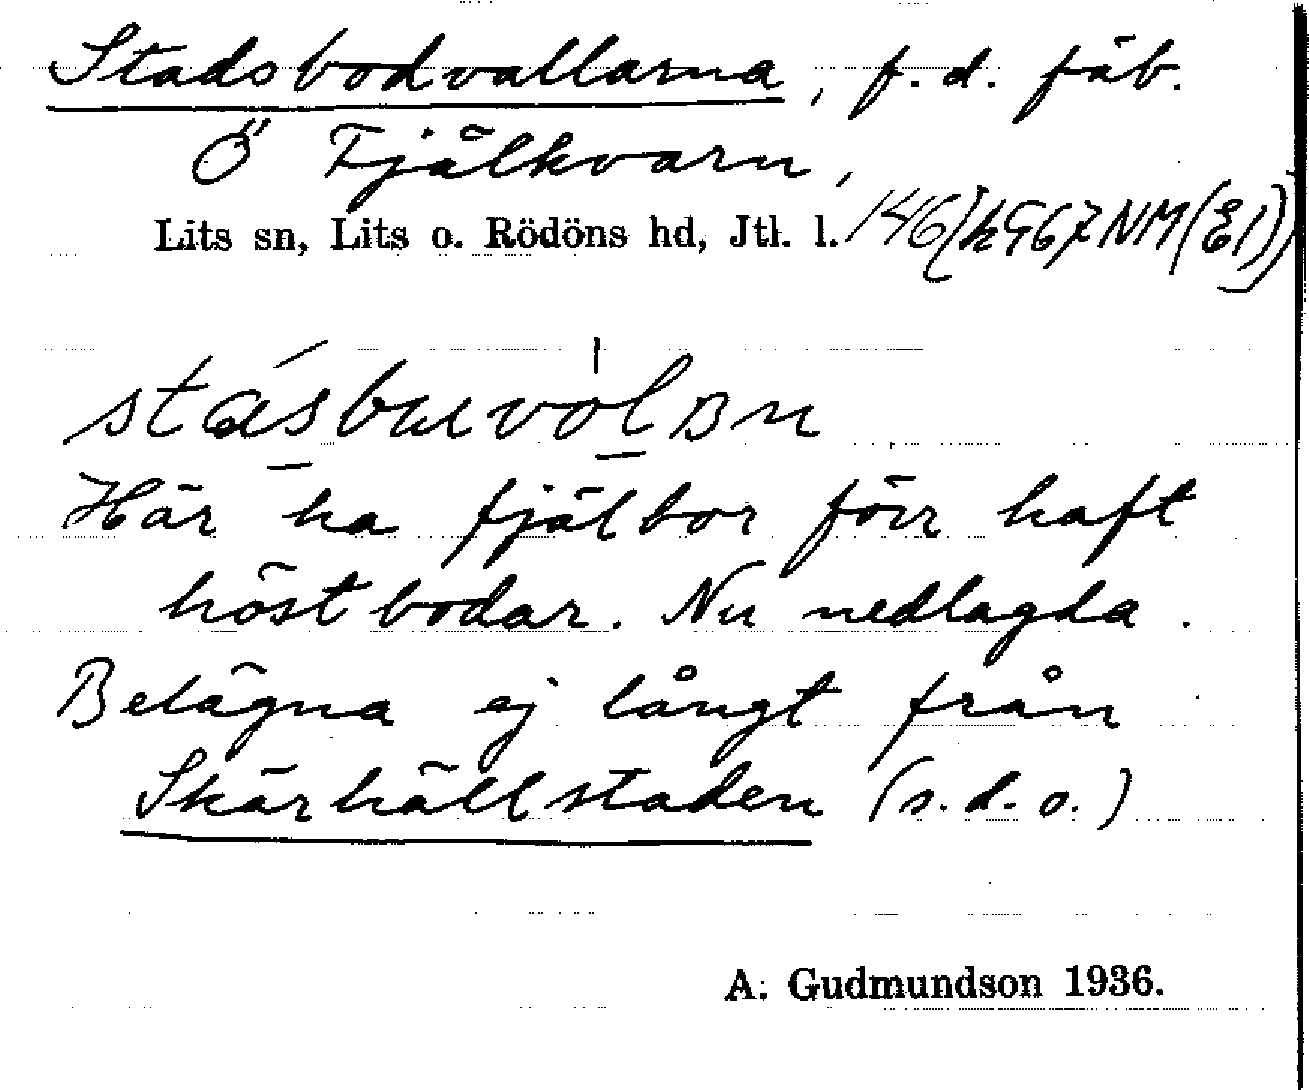 Stadsbodvallarna, f.d. fäb.
Ö Fjälkvarn,
Lits sn, Lits o. Rödöns hd, Jtl. l.
Här ha fjälbor förr haft
höstbodar. Nu nedlagda.
Belägna ej långt från
Skärhällstaden (s.d.o.)
A. Gudmundson 1936.